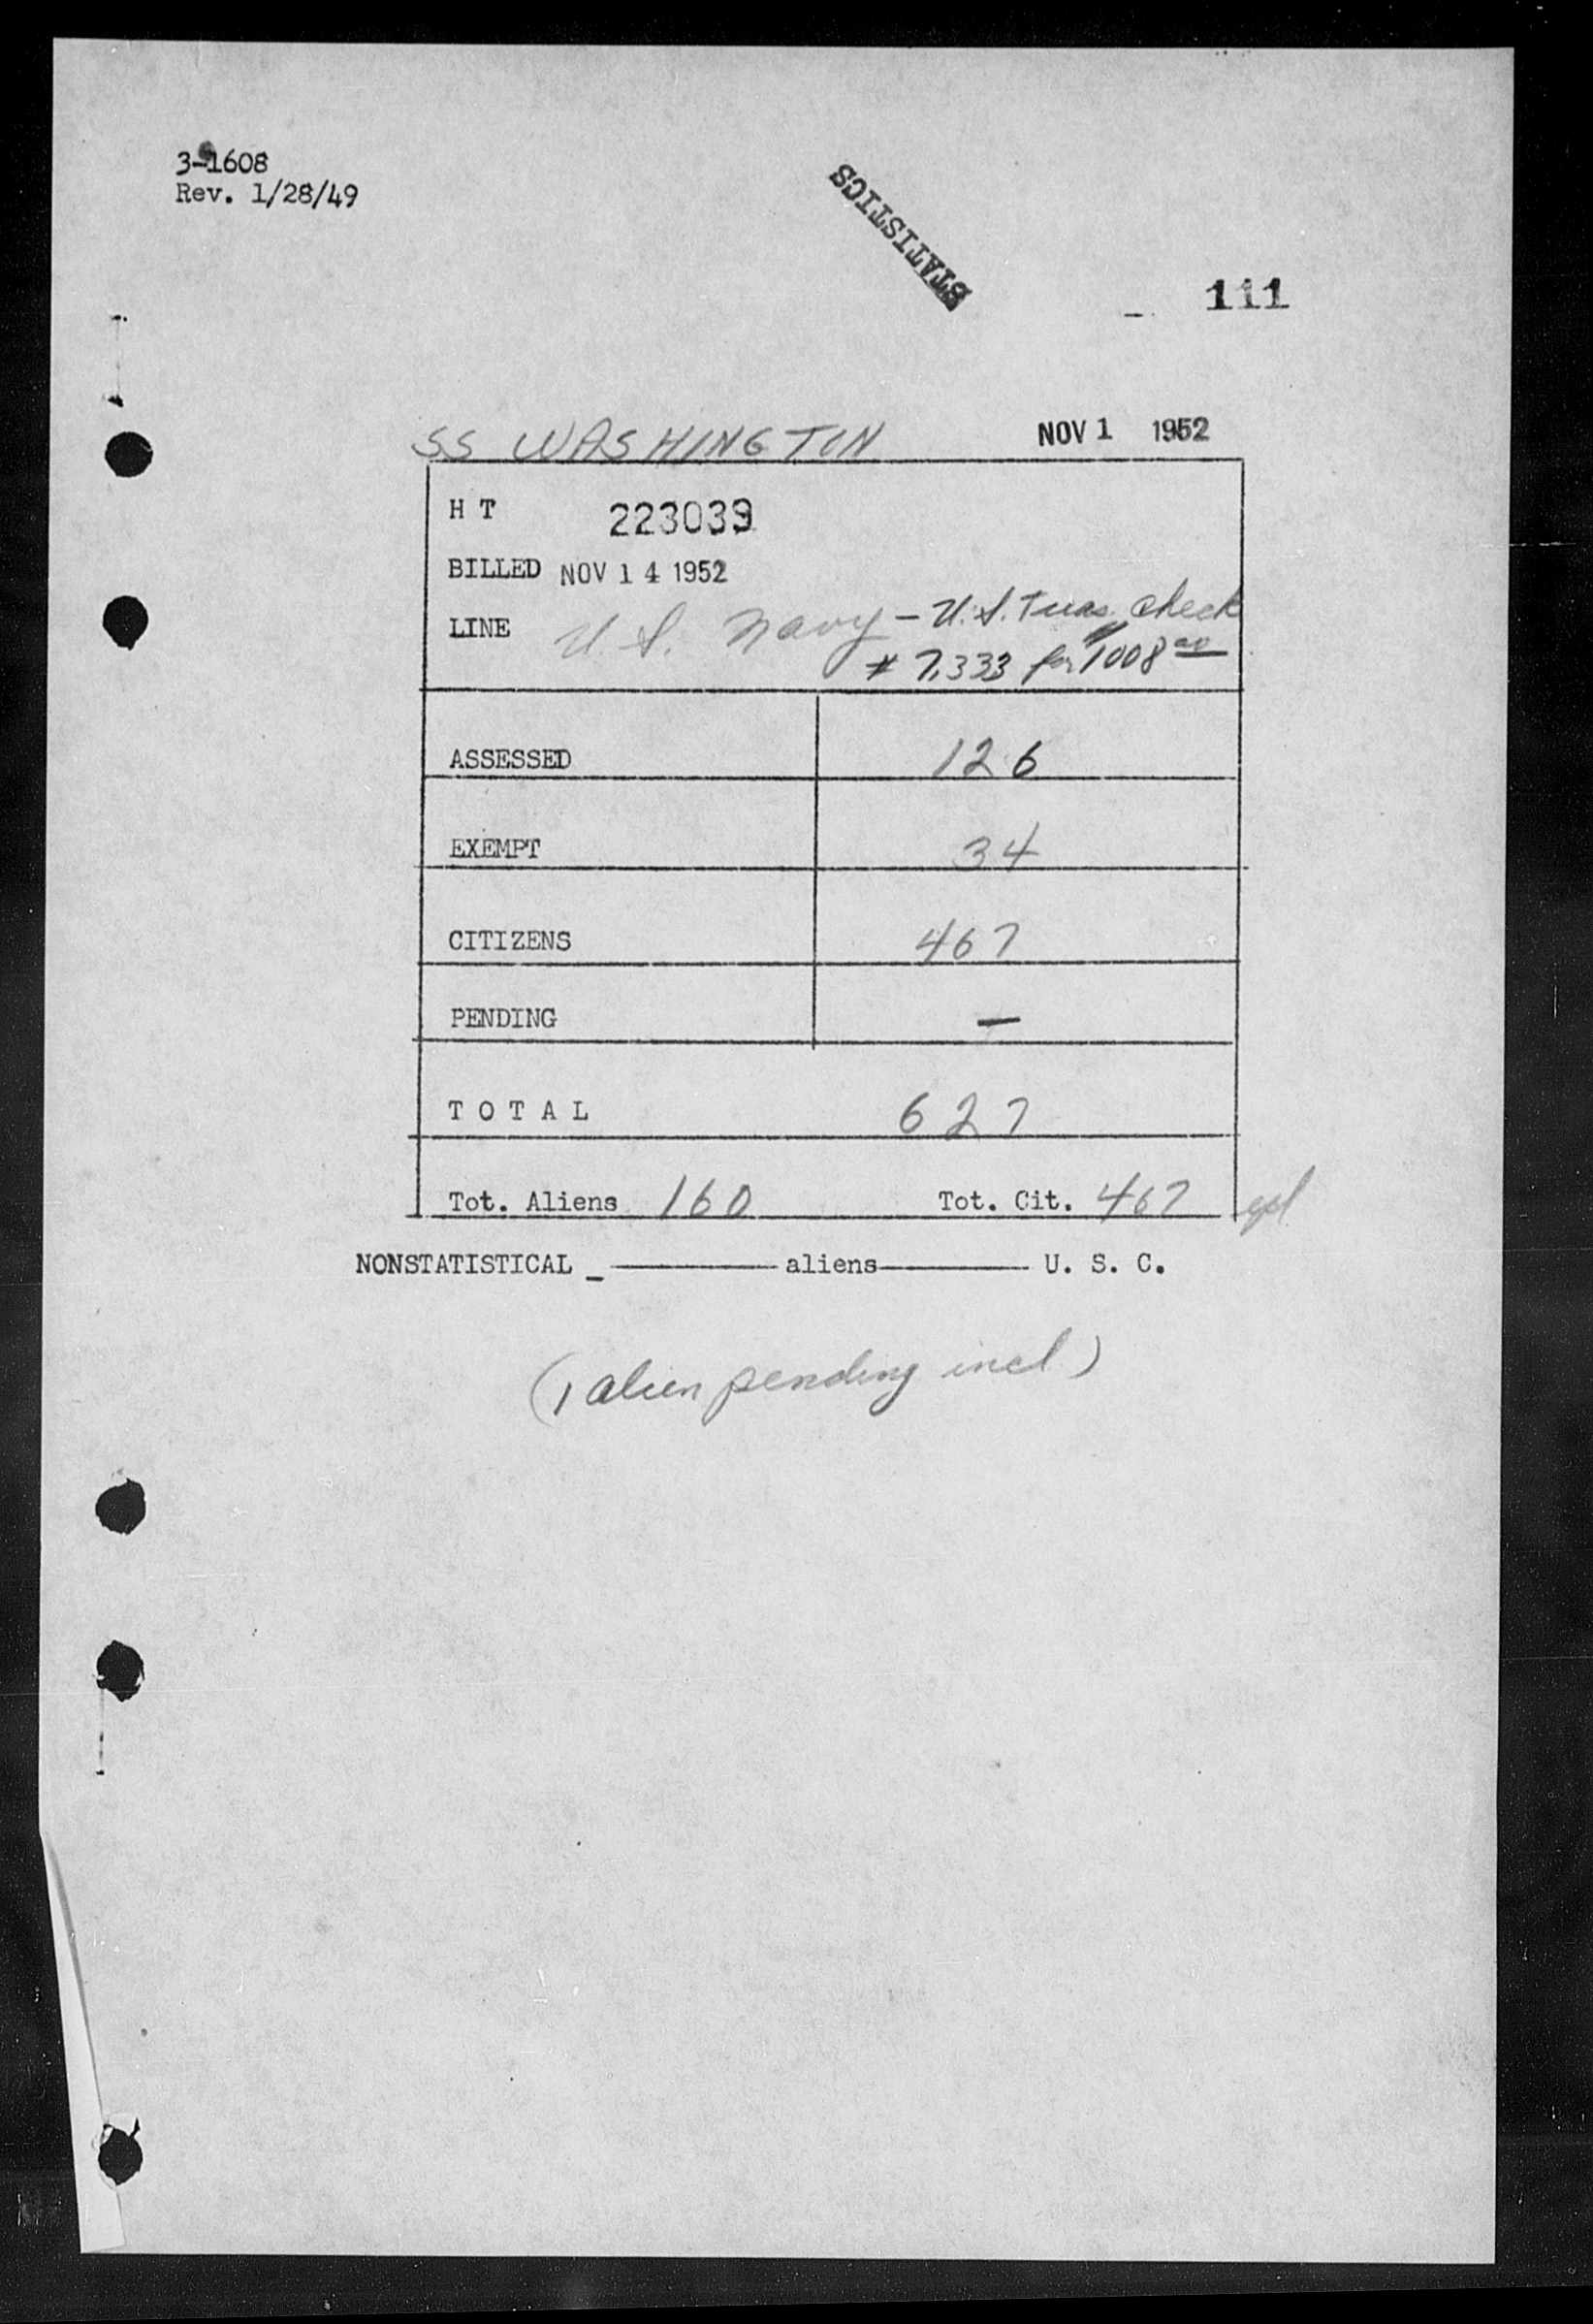 3-1608
Rev. 1/28/49
STATISTICS
111
SS WASHINGTON NOV 1 1952
H T 223039
BILLED NOV 14 1952
LINE U.S. Navy - U.S. Treas. Check
# 7,333 for 1008 00
ASSESSED 126
EXEMPT 34
CITIZENS 467
PENDING —
T O T A L 627
Tot. Aliens 160 Tot. Cit. 467
NONSTATISTICAL _ ——— aliens ——— U. S. C.
(1 alien pending incl)